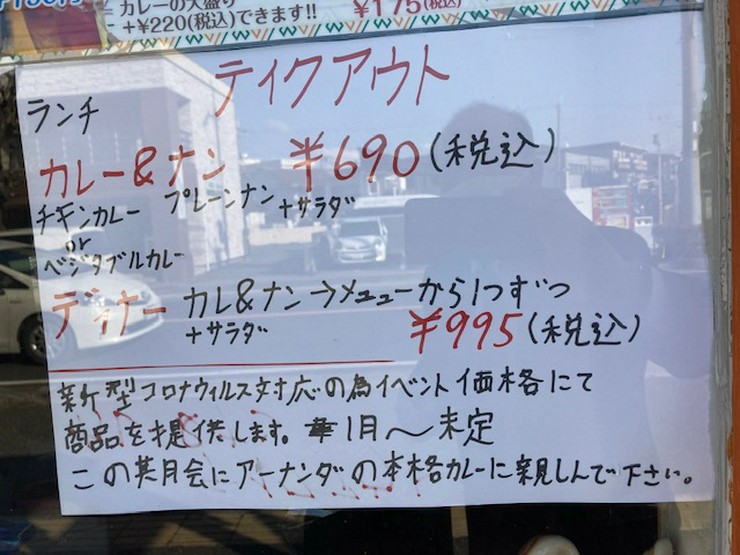 カレーの大盛り
+¥220(税込)できます!! ¥175(税込)
テイクアウト
ランチ
カレー&ナン ¥690(税込)
チキンカレー プレーンナン +サラダ
or
ベジタブルカレー
ディナー カレ&ナン→メニューから1つずつ
+サラダ ¥995(税込)
新型コロナウィルス対応の為イベント価格にて
商品を提供します。1月〜未定
この期会にアーナンダの本格カレーに親しんで下さい。